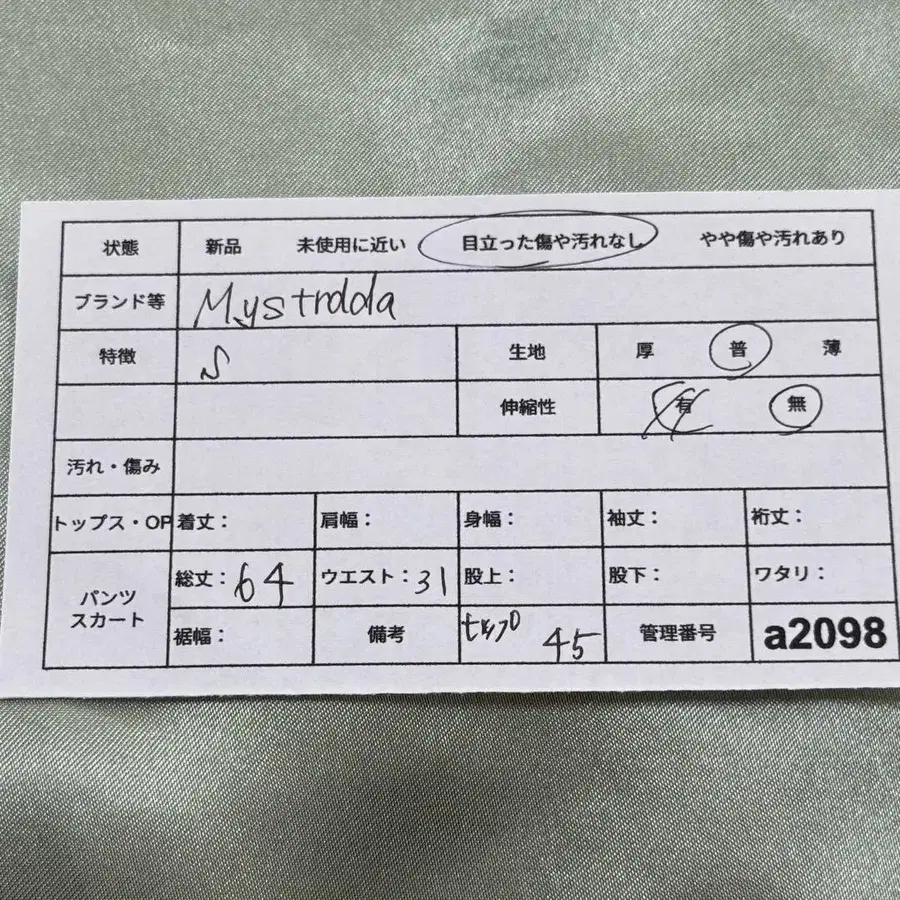 状態 新品 未使用に近い 目立った傷や汚れなし やや傷や汚れあり
ブランド等 Mystrdda
特徴 S 生地 厚 普 薄
伸縮性 有 無
汚れ・傷み
トップス・OP 着丈: 肩幅: 身幅: 袖丈: 裄丈:
パンツ スカート 総丈:64 ウエスト:31 股上: 股下: ワタリ:
裾幅: 備考 ヒップ 45 管理番号 a2098